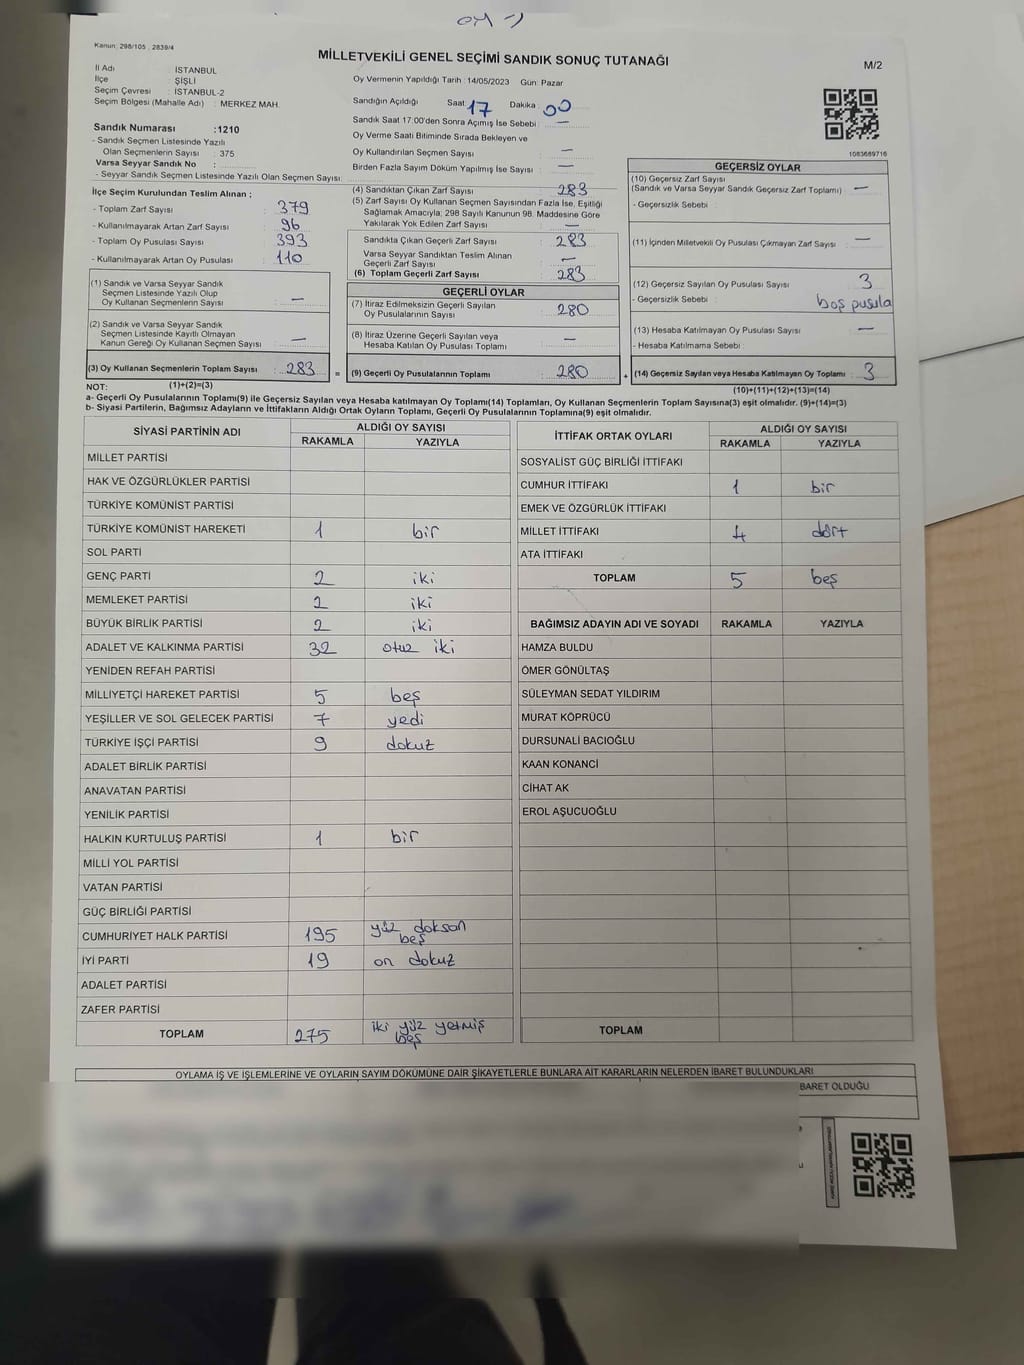 Kanun: 298/105 , 2839/4
MİLLETVEKİLİ GENEL SEÇİMİ SANDIK SONUÇ TUTANAĞI
M/2
İl Adı : İSTANBUL
İlçe : ŞİŞLİ
Seçim Çevresi : İSTANBUL-2
Seçim Bölgesi (Mahalle Adı) : MERKEZ MAH.
Sandık Numarası :1210
- Sandık Seçmen Listesinde Yazılı
Olan Seçmenlerin Sayısı : 375
Varsa Seyyar Sandık No :
- Seyyar Sandık Seçmen Listesinde Yazılı Olan Seçmen Sayısı:
Oy Vermenin Yapıldığı Tarih : 14/05/2023 Gün: Pazar
Sandığın Açıldığı Saat: 17 Dakika : 00
Sandık Saat 17:00'den Sonra Açımış İse Sebebi : —
Oy Verme Saati Bitiminde Sırada Bekleyen ve
Oy Kullandırılan Seçmen Sayısı : —
Birden Fazla Sayım Döküm Yapılmış İse Sayısı : —
1083689716
İlçe Seçim Kurulundan Teslim Alınan ;
- Toplam Zarf Sayısı : 379
- Kullanılmayarak Artan Zarf Sayısı : 96
- Toplam Oy Pusulası Sayısı : 393
- Kullanılmayarak Artan Oy Pusulası : 110
(1) Sandık ve Varsa Seyyar Sandık
Seçmen Listesinde Yazılı Olup
Oy Kullanan Seçmenlerin Sayısı : —
(2) Sandık ve Varsa Seyyar Sandık
Seçmen Listesinde Kayıtlı Olmayan
Kanun Gereği Oy Kullanan Seçmen Sayısı : —
(3) Oy Kullanan Seçmenlerin Toplam Sayısı : 283
(1)+(2)=(3)
(4) Sandıktan Çıkan Zarf Sayısı : 283
(5) Zarf Sayısı Oy Kullanan Seçmen Sayısından Fazla İse, Eşitliği
Sağlamak Amacıyla; 298 Sayılı Kanunun 98. Maddesine Göre
Yakılarak Yok Edilen Zarf Sayısı : —
Sandıkta Çıkan Geçerli Zarf Sayısı : 283
Varsa Seyyar Sandıktan Teslim Alınan
Geçerli Zarf Sayısı : —
(6) Toplam Geçerli Zarf Sayısı : 283
GEÇERLİ OYLAR
(7) İtiraz Edilmeksizin Geçerli Sayılan
Oy Pusulalarının Sayısı : 280
(8) İtiraz Üzerine Geçerli Sayılan veya
Hesaba Katılan Oy Pusulası Toplamı : —
= (9) Geçerli Oy Pusulalarının Toplamı : 280
GEÇERSİZ OYLAR
(10) Geçersiz Zarf Sayısı
(Sandık ve Varsa Seyyar Sandık Geçersiz Zarf Toplamı) : —
- Geçersizlik Sebebi :
(11) İçinden Milletvekili Oy Pusulası Çıkmayan Zarf Sayısı : —
(12) Geçersiz Sayılan Oy Pusulası Sayısı : 3
- Geçersizlik Sebebi : boş pusula
(13) Hesaba Katılmayan Oy Pusulası Sayısı : —
- Hesaba Katılmama Sebebi :
+ (14) Geçersiz Sayılan veya Hesaba Katılmayan Oy Toplamı : 3
(10)+(11)+(12)+(13)=(14)
NOT:
a- Geçerli Oy Pusulalarının Toplamı(9) ile Geçersiz Sayılan veya Hesaba katılmayan Oy Toplamı(14) Toplamları, Oy Kullanan Seçmenlerin Toplam Sayısına(3) eşit olmalıdır. (9)+(14)=(3)
b- Siyasi Partilerin, Bağımsız Adayların ve İttifakların Aldığı Ortak Oyların Toplamı, Geçerli Oy Pusulalarının Toplamına(9) eşit olmalıdır.
SİYASİ PARTİNİN ADI ALDIĞI OY SAYISI
RAKAMLA YAZIYLA
MİLLET PARTİSİ
HAK VE ÖZGÜRLÜKLER PARTİSİ
TÜRKİYE KOMÜNİST PARTİSİ
TÜRKİYE KOMÜNİST HAREKETİ 1 bir
SOL PARTİ
GENÇ PARTİ 2 iki
MEMLEKET PARTİSİ 2 iki
BÜYÜK BİRLİK PARTİSİ 2 iki
ADALET VE KALKINMA PARTİSİ 32 otuz iki
YENİDEN REFAH PARTİSİ
MİLLİYETÇİ HAREKET PARTİSİ 5 beş
YEŞİLLER VE SOL GELECEK PARTİSİ 7 yedi
TÜRKİYE İŞÇİ PARTİSİ 9 dokuz
ADALET BİRLİK PARTİSİ
ANAVATAN PARTİSİ
YENİLİK PARTİSİ
HALKIN KURTULUŞ PARTİSİ 1 bir
MİLLİ YOL PARTİSİ
VATAN PARTİSİ
GÜÇ BİRLİĞİ PARTİSİ
CUMHURİYET HALK PARTİSİ 195 yüz doksan beş
İYİ PARTİ 19 on dokuz
ADALET PARTİSİ
ZAFER PARTİSİ
TOPLAM 275 iki yüz yetmiş beş
İTTİFAK ORTAK OYLARI ALDIĞI OY SAYISI
RAKAMLA YAZIYLA
SOSYALİST GÜÇ BİRLİĞİ İTTİFAKI
CUMHUR İTTİFAKI 1 bir
EMEK VE ÖZGÜRLÜK İTTİFAKI
MİLLET İTTİFAKI 4 dört
ATA İTTİFAKI
TOPLAM 5 beş
BAĞIMSIZ ADAYIN ADI VE SOYADI RAKAMLA YAZIYLA
HAMZA BULDU
ÖMER GÖNÜLTAŞ
SÜLEYMAN SEDAT YILDIRIM
MURAT KÖPRÜCÜ
DURSUNALİ BACIOĞLU
KAAN KONANCİ
CİHAT AK
EROL AŞUCUOĞLU
TOPLAM
OYLAMA İŞ VE İŞLEMLERİNE VE OYLARIN SAYIM DÖKÜMÜNE DAİR ŞİKAYETLERLE BUNLARA AİT KARARLARIN NELERDEN İBARET BULUNDUKLARI
BARET OLDUĞU